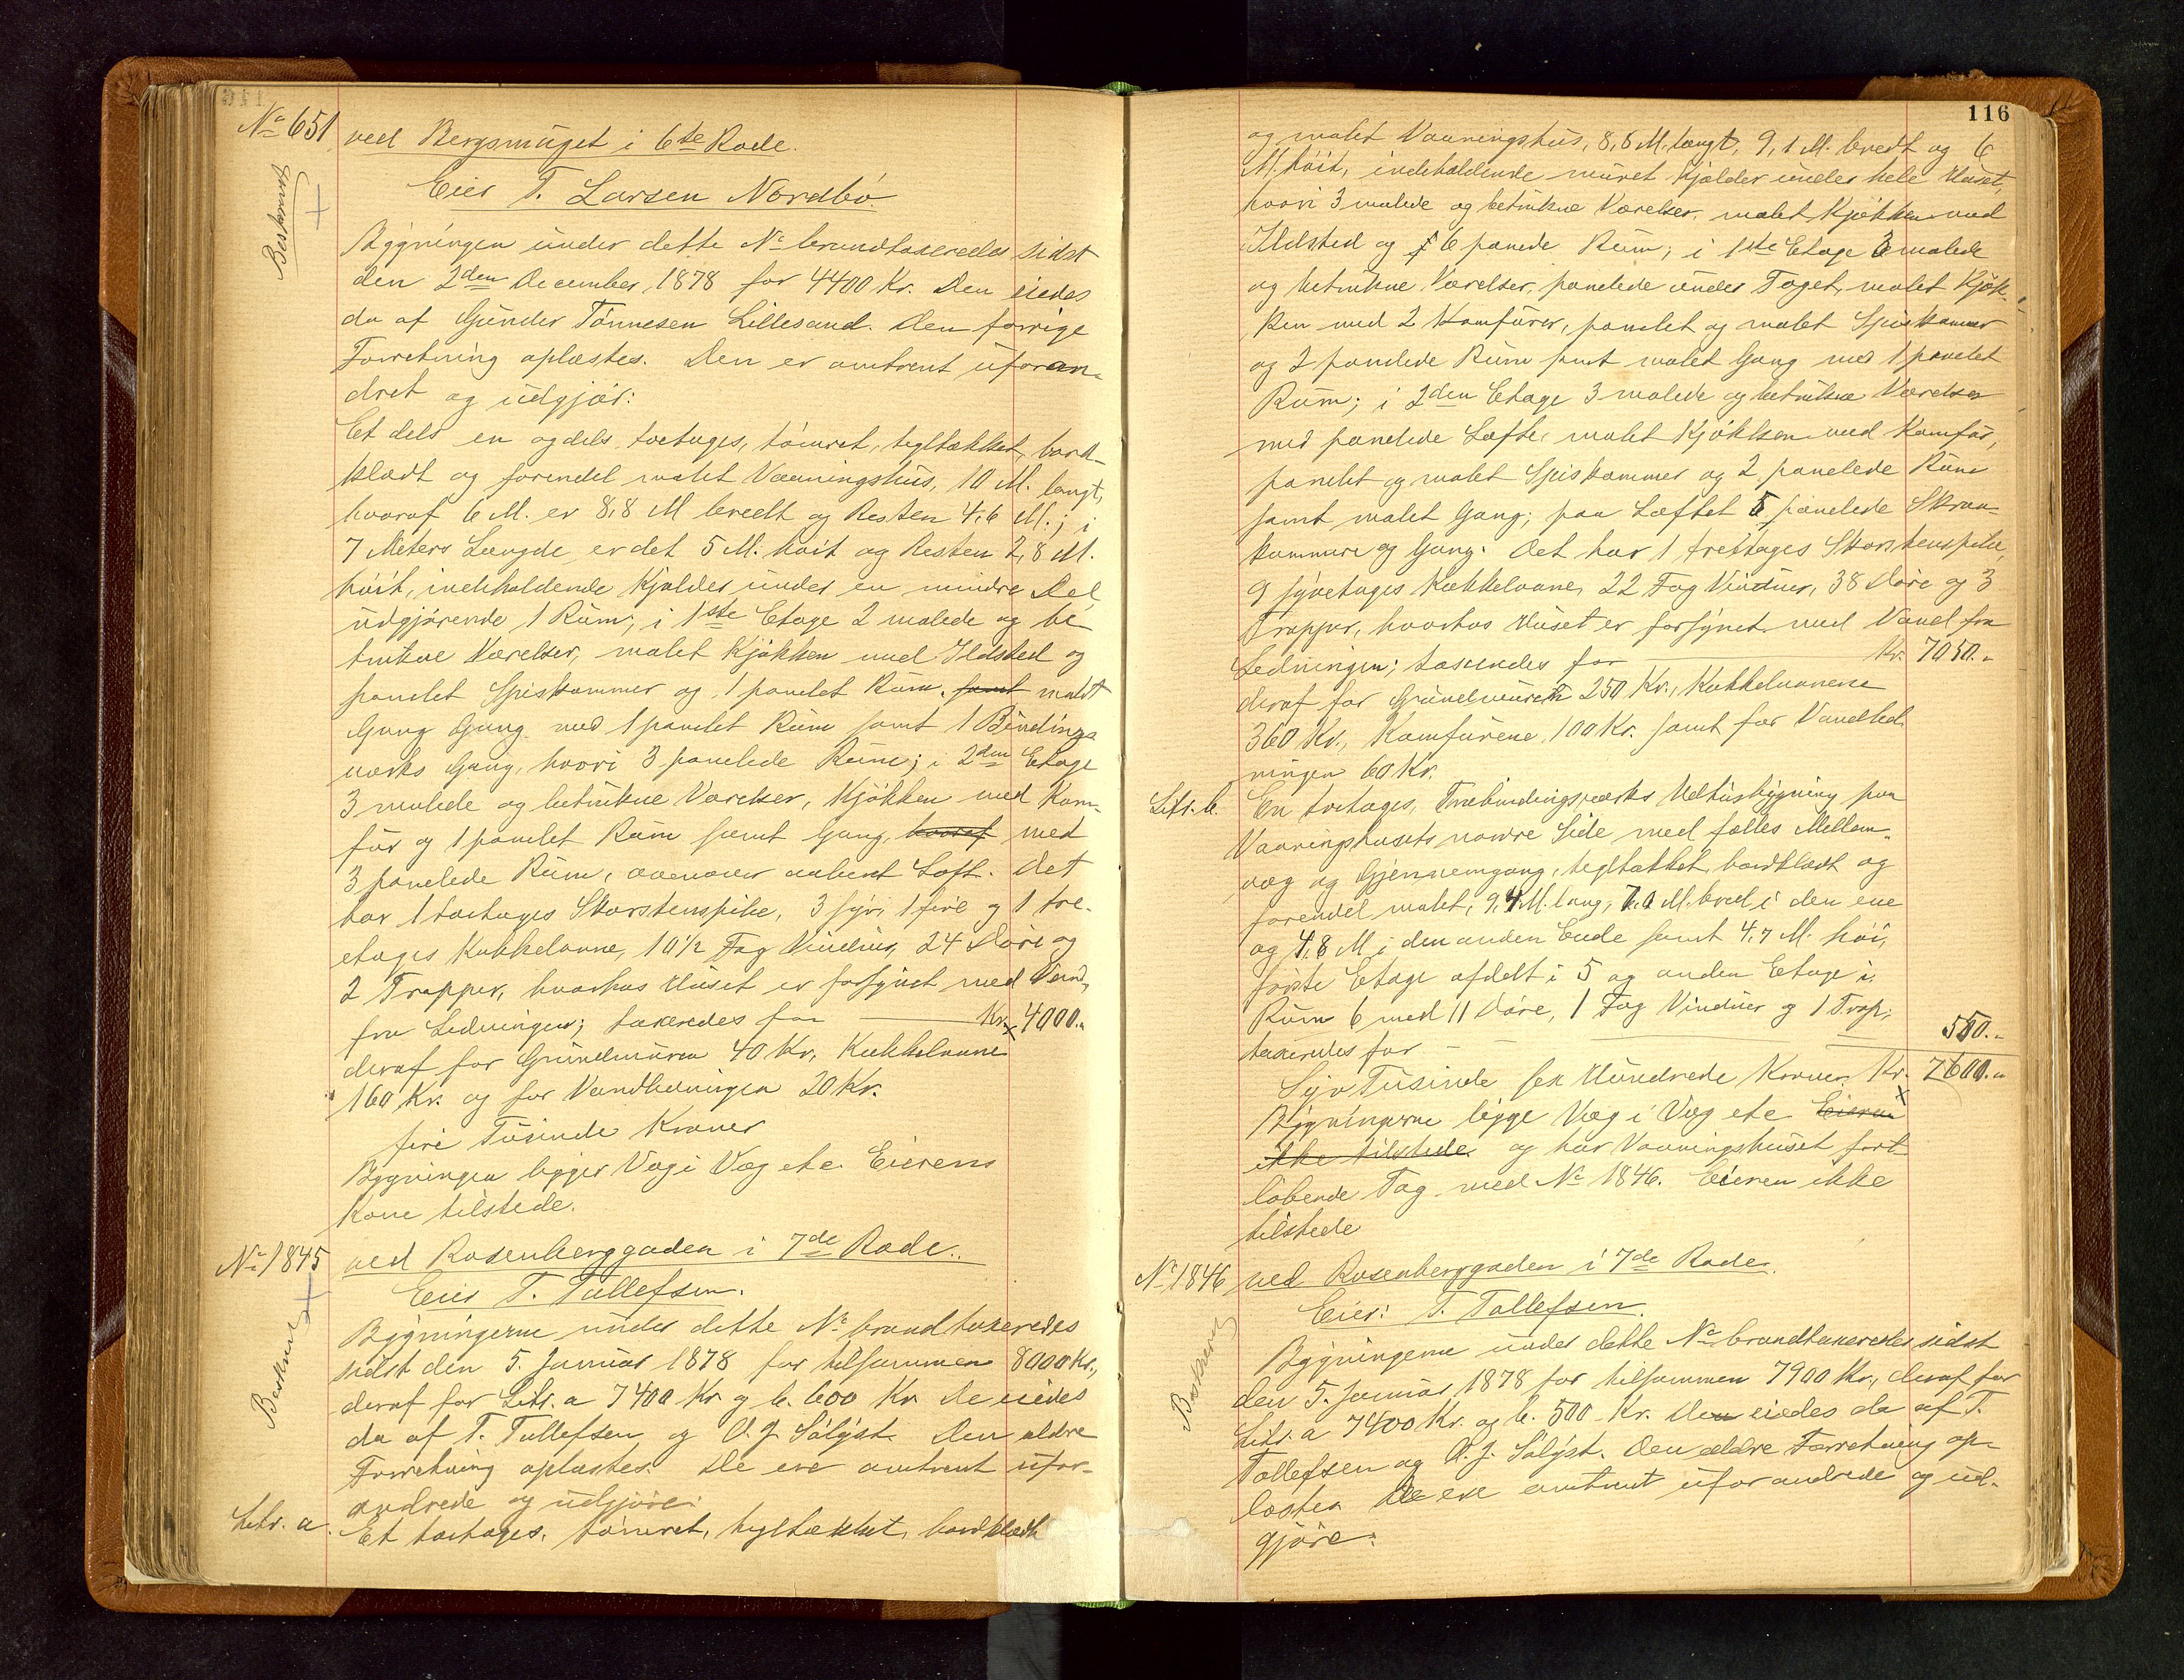 No 651 ved Bergsmuget i 6te Rode.
Beskrevet
Eier T. Larsen Nordbö.
Bygningen under dette No brandtaxeredes sidst
den 2den December 1878 for 4400 Kr. Den eiedes
da af Gunder Tönnesen Lillesand. Den forrige
Forretning oplæstes. Den er omtrent uforan-
dret og udgjör:
Et dels en og dels toetages, tömret, tegltækket, bord-
klædt og forendel malet Vaaningshus, 10 M. langt,
hvoraf 6 M. er 8,8 M bredt og Resten 4,6 M.; i
7 Meters Længde er det 5 M. höit og Resten 2,8 M.
höit, indeholdende Kjelder under en mindre Del
udgjörende 1 Rum; i 1ste Etage 2 malede og be-
trukne Værelser, malet Kjökken med Ildsted og
panelet Spiskammer og 1 panelet Rum, samt malet
Gang Gang med 1 panelet Rum samt 1 Bindings
værks Gang, hvori 3 panelede Rum; i 2den Etage
3 malede og betrukne Værelser, Kjökken med Kom-
für og 1 panelet Rum samt Gang, hvoraf med
3 panelede Rum, ovenover aabent Loft. Det
har 1 toetages Skorstenspibe, 3 syv, 1 fire og 1 tre-
etages Kakkelovne, 10 1/2 Fag Vinduer, 24 Döre og
2 Trapper, hvorhos Huset er forsynet med Vand
fra Ledningen; taxeredes for Kr. 4000.,
deraf for Grundmuren 40 Kr., Kakkelovnene
160 Kr. og for Vandledningen 20 Kr.
fire Tusinde Kroner
Bygningen ligger Væg i Væg etc. Eierens
Kone tilstede.
No 1845 ved Rosenberggaden i 7de Rode.
Beskrevet
Eier T. Tollefsen.
Bygningerne under dette No brandtaxeredes
sidst den 5. Januar 1878 for tilsammen 8000 Kr.,
deraf for Litr. a 7400 Kr. og b. 600 Kr. De eiedes
da af T. Tollefsen og O. J. Sölyst. Den ældre
Forretning oplæstes. De ere omtrent ufor-
andrede og udgjöre:
Litr. a. Et toetages, tömret, tegltækket, bordklædt
116
og malet Vaaningshus, 8,8 M. langt, 9,1 M. bredt og 6
M. höit, indeholdende muret Kjelder under hele Huset,
hvori 3 malede og betrukne Værelser, malet Kjökken med
Ildsted og 6 panede Rum; i 1ste Etage 3 malede
og betrukne Værelser, panelede under Taget, malet Kjök-
ken med 2 Komfürer, panelet og malet Spiskammer
og 2 panelede Rum samt malet Gang med 1 panelet
Rum; i 2den Etage 3 malede og betrukne Værelser
med panelede Lofte, malet Kjökken med Komfür,
panelet og malet Spiskammer og 2 panelede Rum
samt malet Gang; paa Loftet 5 panelede
kammere og Gang. Det har 1 treetages Skorstenspibe,
9 syvetages Kakkelovne, 22 Fag Vinduer, 38 Döre og 3
Trapper, hvorhos Huset er forsynet med Vand fra
Ledningen; taxeredes for Kr. 7050.,
deraf for Grundmuren 250 Kr., Kakkelovnene
360 Kr., Komfürene 100 Kr. samt for Vandled-
ningen 60 Kr.
Litr. b. En toetages, Træbindingsværks Udhusbygning paa
Vaaningshusets nordre Side med fælles Mellem-
væg og Gjennemgang, tegltækket, bordklædt og
forendel malet, 9,4 M. lang, 7,0 M. bred i den ene
og 4,8 M i den anden Ende samt 4,7 M. höi,
förste Etage afdelt i 5 og anden Etage i
Rum 6 med 11 Döre, 1 Fag Vinduer og 1 Trap;
taxeredes for 550.,
Syv Tusinde sex Hundrede Kroner Kr. 7600.,
Bygningerne ligge Væg i Væg etc. Eieren
ikke tilstede. og har Vaaningshuset fort-
löbende Tag med No 1846. Eieren ikke
tilstede
No 1846 ved Rosenberggaden i 7de Rode.
Beskrevet
Eier: T. Tollefsen.
Bygningerne under dette No brandtaxeredes sidst
den 5. Januar 1878 for tilsammen 7900 Kr., deraf for
Litr. a 7400 Kr. og b. 500 Kr. De eiedes da af T.
Tollefsen og O. J. Sölyst. Den ældre Forretning op-
læstes De ere omtrent uforandrede og ud-
gjöre: